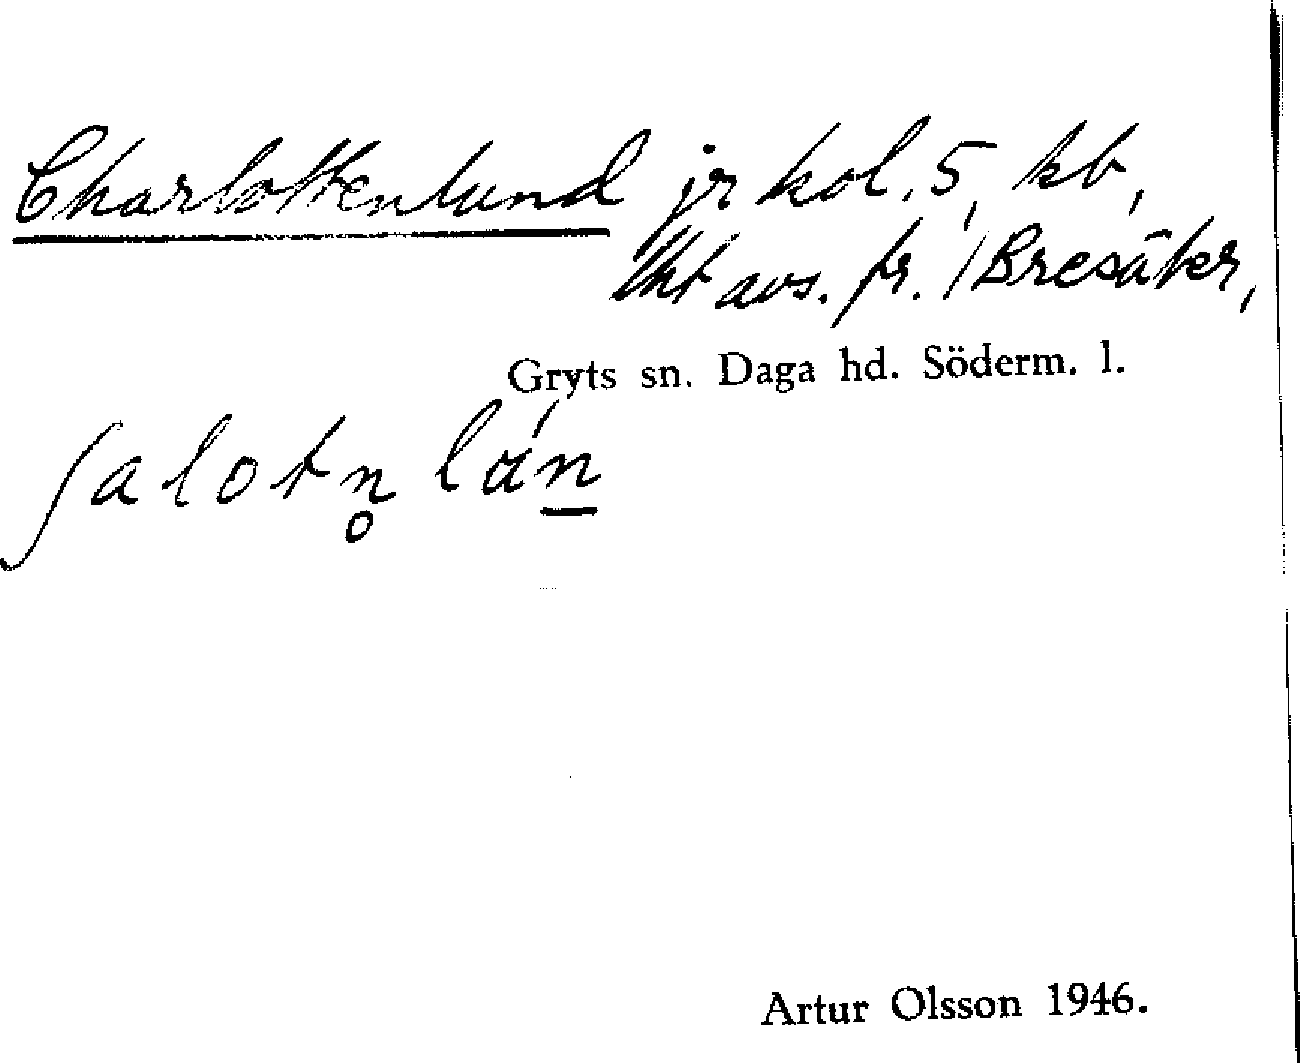 Charlottenlund jr kol. 5, kb,
lht avs. fr. 1/Bresäter,
Gryts sn. Daga hd. Söderm. l.
ʃalotn̥ lán̲
Artur Olsson 1946.